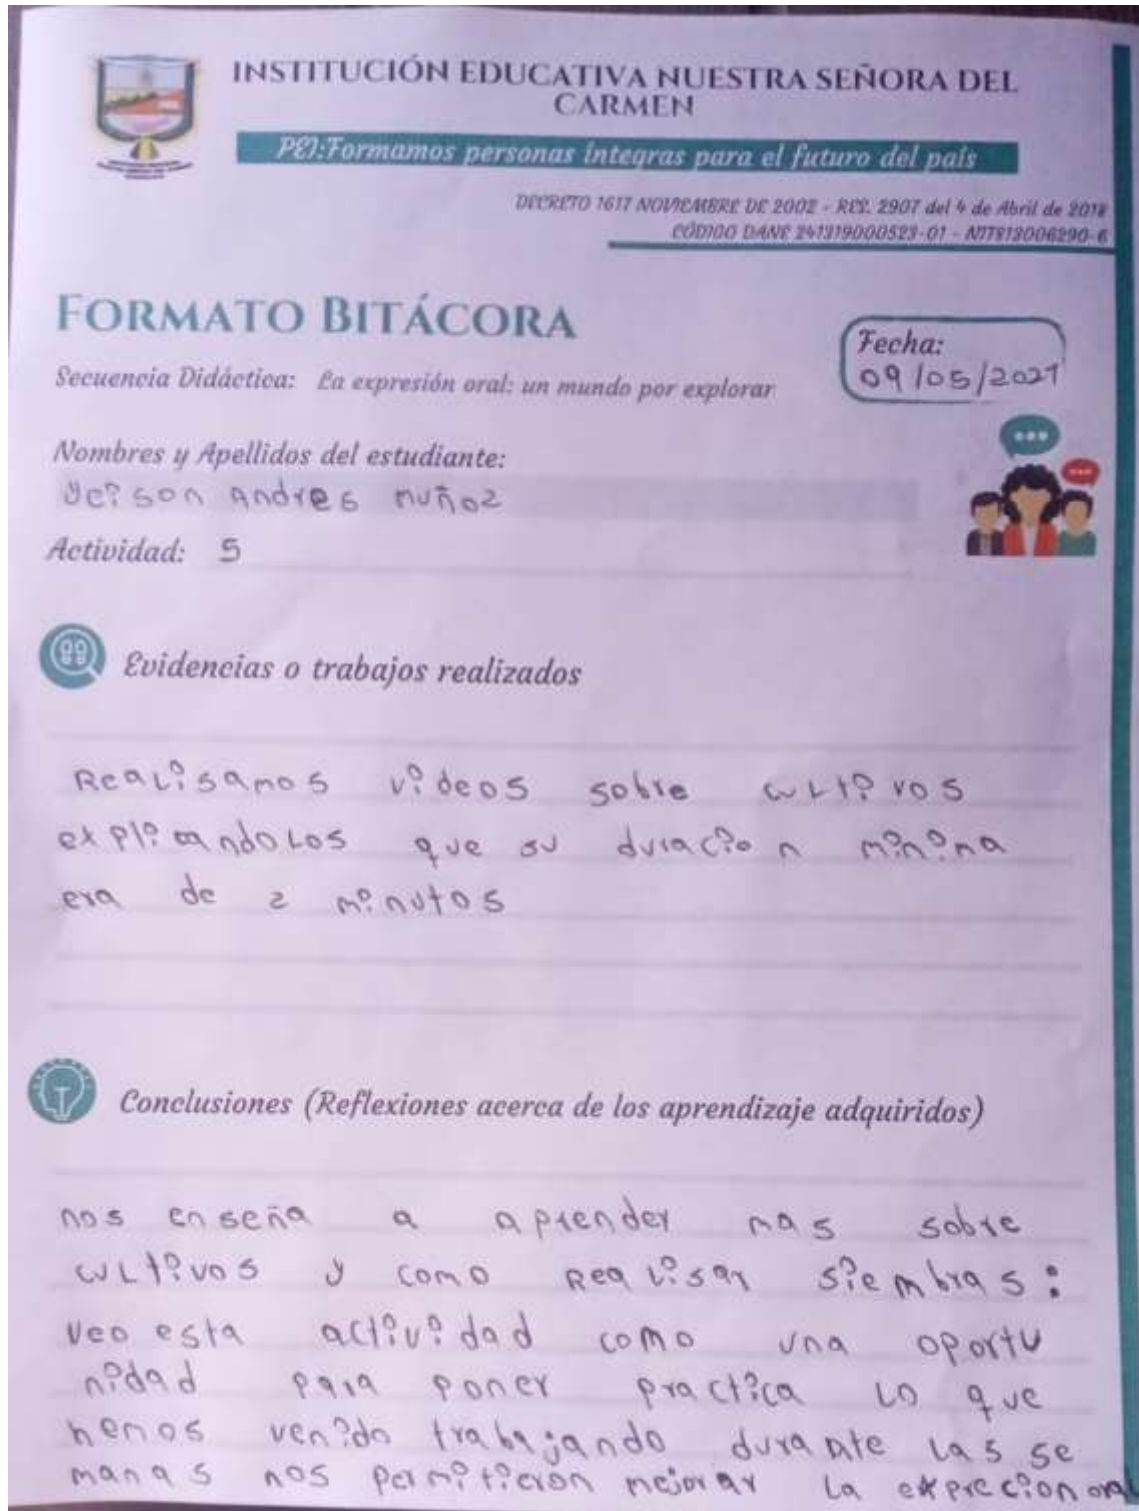 INSTITUCIÓN EDUCATIVA NUESTRA SEÑORA DEL
CARMEN
PEI:Formamos personas íntegras para el futuro del país
DECRETO 1617 NOVIEMBRE DE 2002 - RES. 2907 del 4 de Abril de 2018
CÓDIGO DANE 241319000523-01 - NIT813006290-6
FORMATO BITÁCORA
Fecha:
09/05/2021
Secuencia Didáctica: La expresión oral: un mundo por explorar
Nombres y Apellidos del estudiante:
Yeison andres muñoz
Actividad: 5
Evidencias o trabajos realizados
Realisamos videos sobre cultivos
explicandolos que su duracion minina
era de 2 minutos
Conclusiones (Reflexiones acerca de los aprendizaje adquiridos)
nos enseña a aprender mas sobre
cultivos y como Realisar siembras:
veo esta actividad como una oportu
nidad para poner practica lo que
hemos venido trabajando durante las se
manas nos permitieron mejorar la exprecion oral